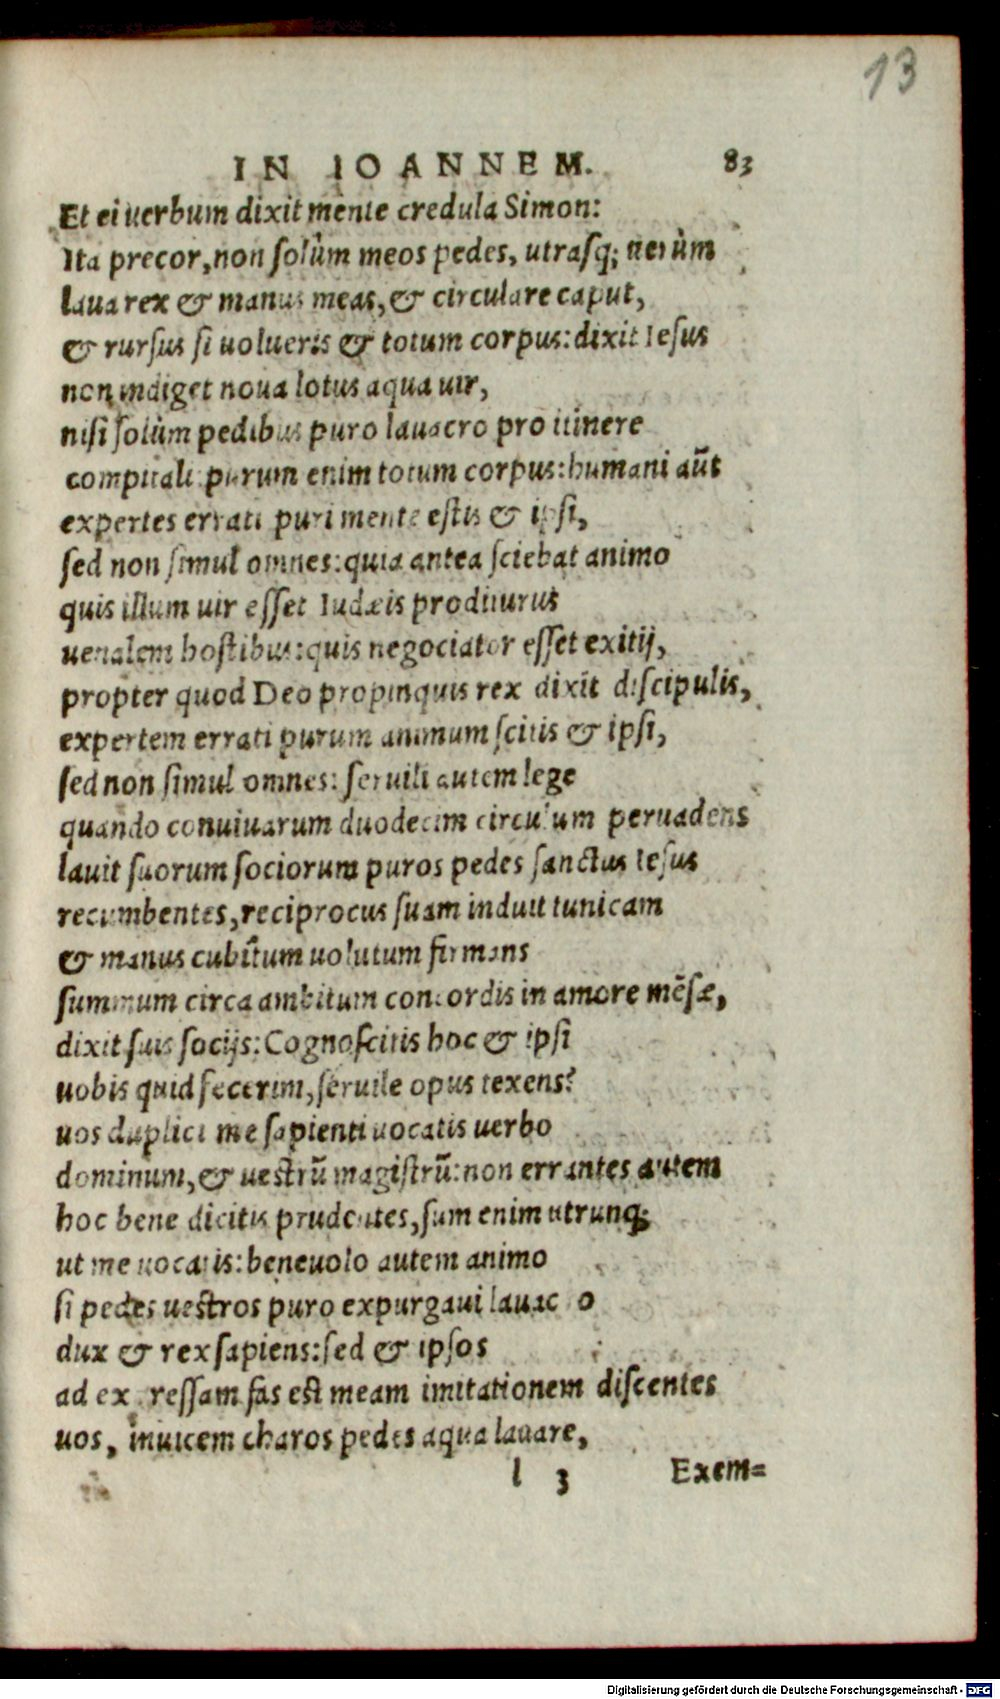 13
IN IOANNEM. 83
Et ei uerbum dixit mente credula Simon:
Ita precor, non solùm meos pedes, utrasq; uerùm
laua rex & manus meas, & circulare caput,
& rursus si uolueris & totum corpus: dixit Iesus
non indiget noua lotus aqua uir,
nisi solùm pedibus puro lauacro pro itinere
compitali: purum enim totum corpus: humani aũt
expertes errati puri mente estis & ipsi,
sed non simul omnes: quia antea sciebat animo
quis illum uir esset Iudæis proditurus
uenalem hostibus: quis negociator esset exitij,
propter quod Deo propinquis rex dixit discipulis,
expertem errati purum animum scitis & ipsi,
sed non simul omnes: seruili autem lege
quando conuiuarum duodecim circulum peruadens
lauit suorum sociorum puros pedes sanctus Iesus
recumbentes, reciprocus suam induit tunicam
& manus cubitum uolutum firmans
summum circa ambitum concordis in amore mẽsæ,
dixit suis socijs: Cognoscitis hoc & ipsi
uobis quid fecerim, seruile opus texens?
uos duplici me sapienti uocatis uerbo
dominum, & uestrũ magistrũ: non errantes autem
hoc bene dicitis prudentes, sum enim utrunq;
ut me uocatis: beneuolo autem animo
si pedes uestros puro expurgaui lauac o
dux & rex sapiens: sed & ipsos
ad ex ressam fas est meam imitationem discentes
uos, inuicem charos pedes aqua lauare,
l 3 Exem=
Digitalisierung gefördert durch die Deutsche Forschungsgemeinschaft - DFG